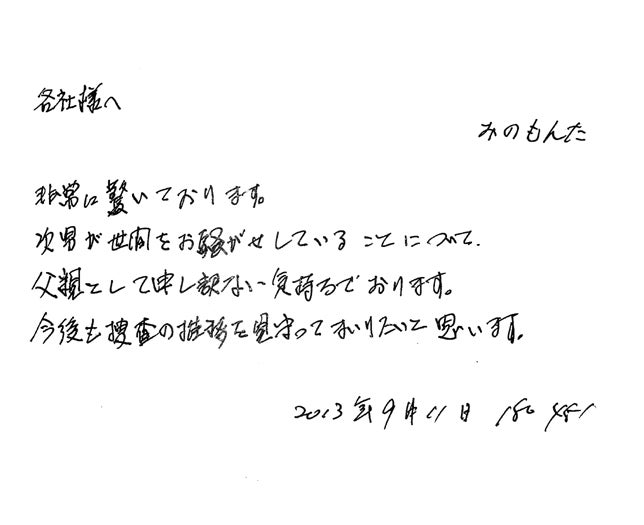 各社様へ
みのもんた
非常に驚いております。
次男が世間をお騒がせしていることについて、
父親として申し訳ない気持ちでおります。
今後も捜査の推移を見守ってまいりたいと思います。
2013年9月11日